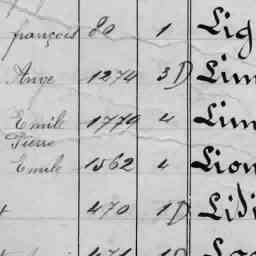 françois 80 1 Lig
Ange 1274 3 D Lim
Emile 1779 4 Lim
Pierre
Emile 1562 4 Lion
470 1 D Lidi
471 1 D